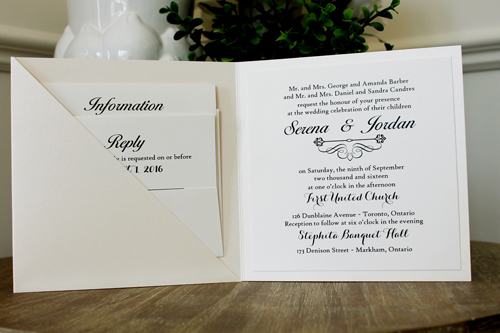 Information
Reply
is requested on or before
1, 2016
Mr. and Mrs. George and Amanda Barber
and Mr. and Mrs. Daniel and Sandra Candres
request the honour of your presence
at the wedding celebration of their children
Serena & Jordan
on Saturday, the ninth of September
two thousand and sixteen
at one o'clock in the afternoon
First United Church
126 Dunblaine Avenue - Toronto, Ontario
Reception to follow at six o'clock in the evening
Stephita Banquet Hall
173 Denison Street - Markham, Ontario